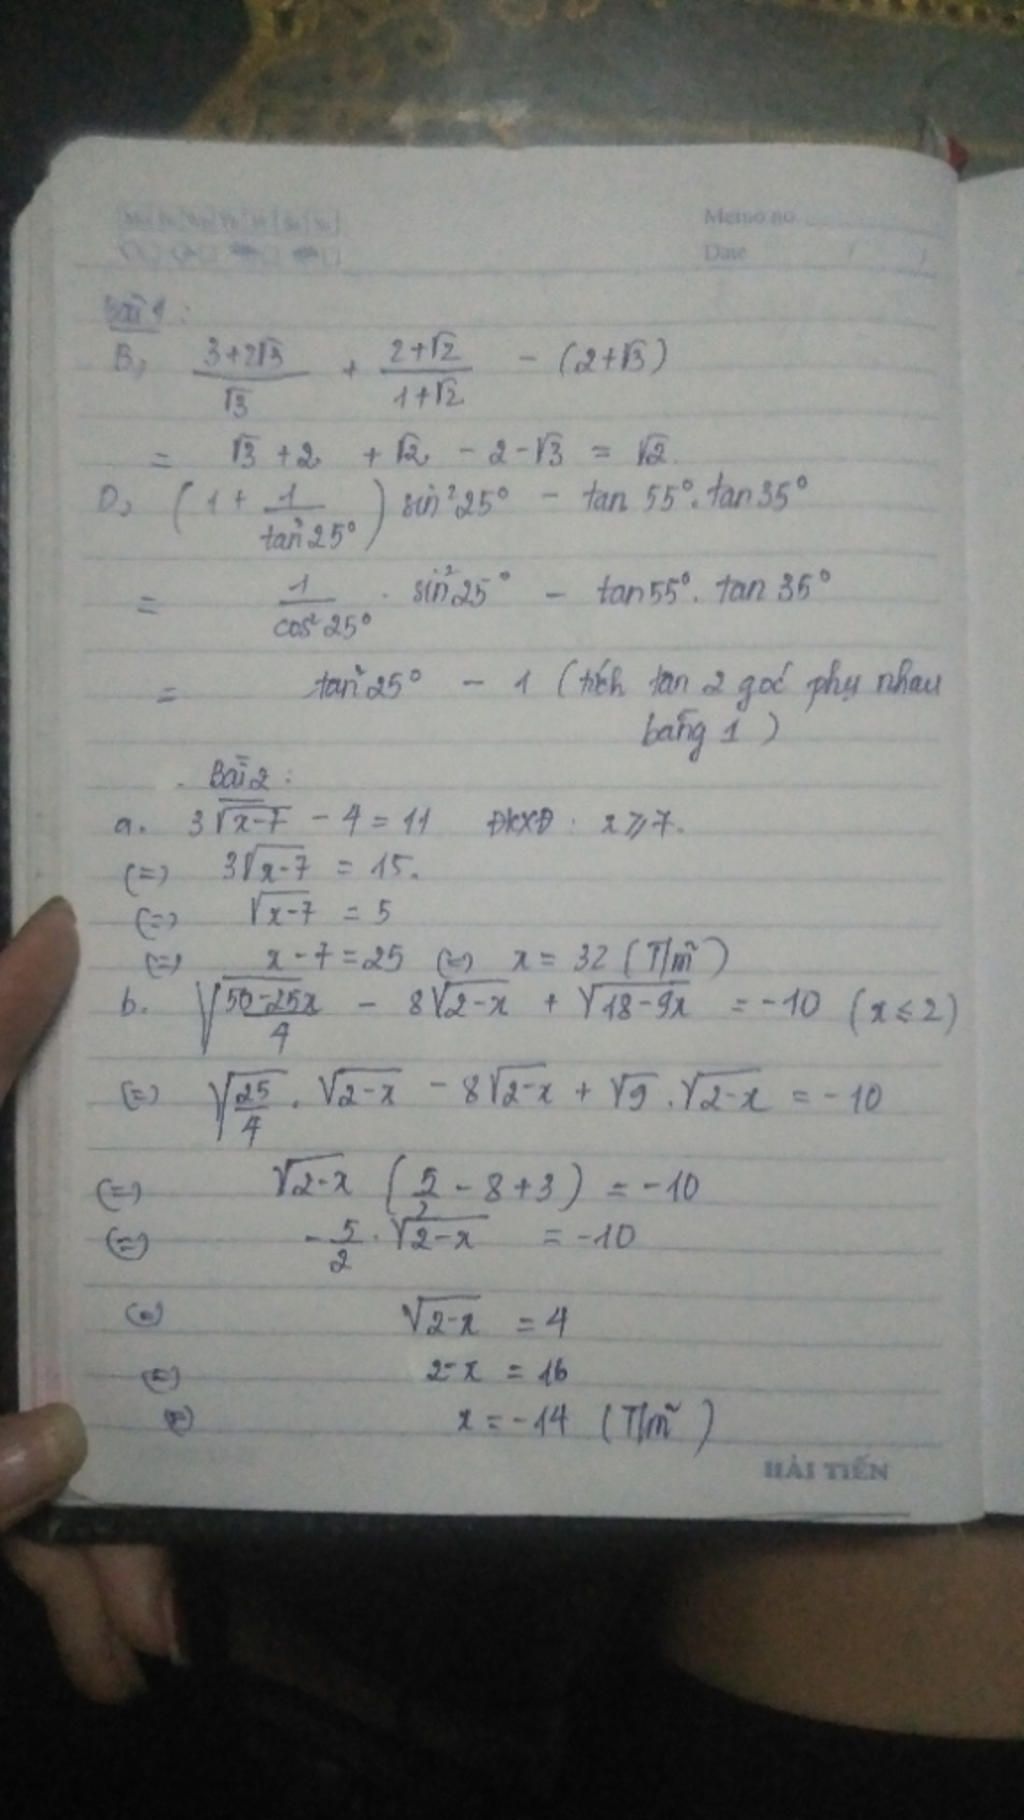 Memo no
Date
Bài 1:
B, (3+2√3)/√3 + (2+√2)/(1+√2) - (2+√3)
= √3 + 2 + √2 - 2 - √3 = √2.
D, (1 + 1/tan²25°) sin²25° - tan 55°. tan 35°
= 1/cos²25° . sin²25° - tan55°. tan 35°
= tan²25° - 1 (tích tan 2 góc phụ nhau
bằng 1)
Bài 2:
a. 3√(x-7) - 4 = 11 ĐKXĐ: x ≥ 7.
(=) 3√(x-7) = 15.
(=) √(x-7) = 5
(=) x - 7 = 25 (=) x = 32 (T/m)
b. √((50-25x)/4) - 8√(2-x) + √(18-9x) = -10 (x ≤ 2)
(=) √(25/4) . √(2-x) - 8√(2-x) + √9 . √(2-x) = -10
(=) √(2-x) (5/2 - 8 + 3) = -10
(=) -5/2 . √(2-x) = -10
(=) √(2-x) = 4
(=) 2-x = 16
(=) x = -14 (T/m)
HẢI TIẾN